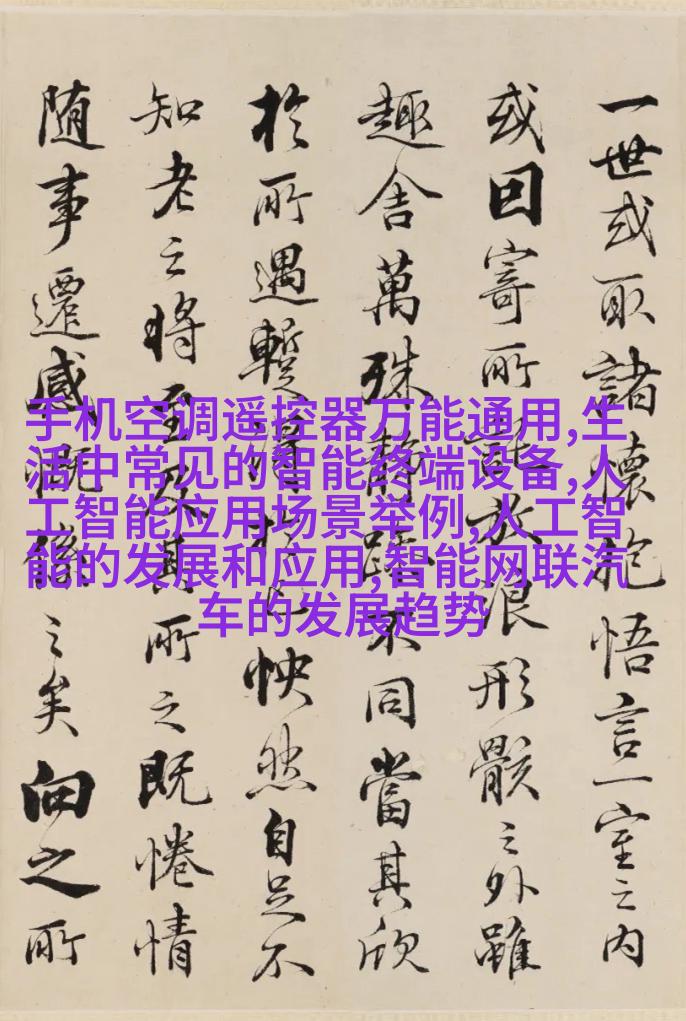 一世或取諸懷抱悟言一室之内
或因寄所託放浪形骸之外雖
趣舍萬殊靜躁不同當其欣
於所遇暫得於己怏然自足不
知老之將至及其所之既惓情
随事遷感慨係之矣向之所
手机空调遥控器万能通用,生
活中常见的智能终端设备,人
工智能应用场景举例,人工智
能的发展和应用,智能网联汽
车的发展趋势